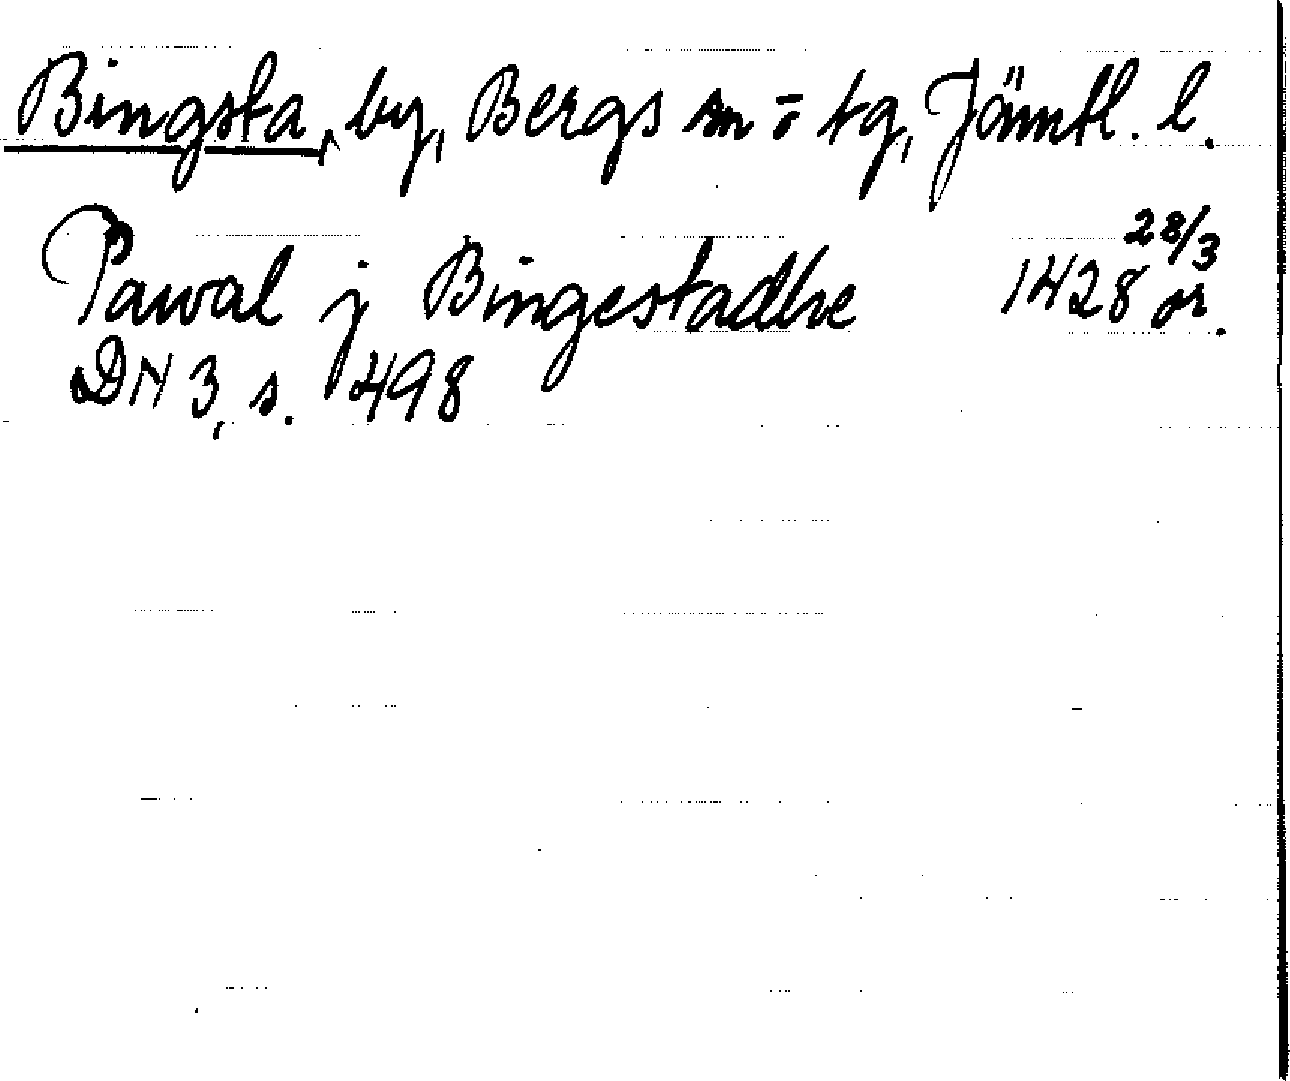 Bingsta, by, Bergs sn o tg, Jämtl. l.
Pawal j Bingestadhe 1428 28/3 or.
DN 3, s. 498